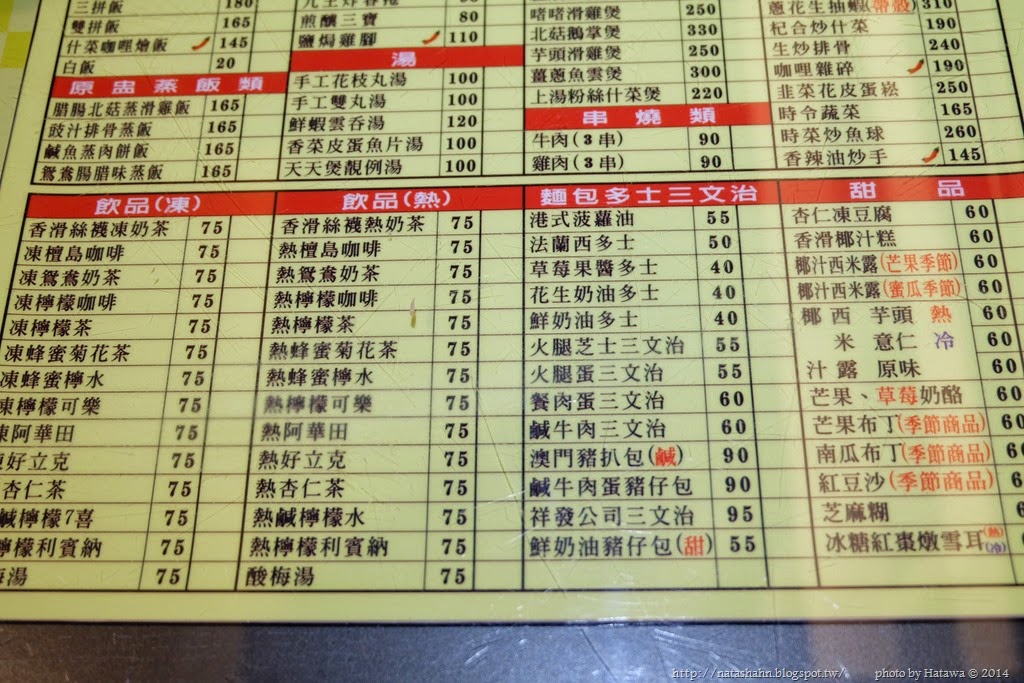 三拼飯 180
雙拼飯 165
什菜咖哩燴飯 145
白飯 20
原盅蒸飯類
腊腸北菇蒸滑雞飯 165
豉汁排骨蒸飯 165
鹹魚蒸肉餅飯 165
鴛鴦腸腊味蒸飯 165
煎釀三寶 80
鹽焗雞腳 110
湯
手工花枝丸湯 100
手工雙丸湯 100
鮮蝦雲吞湯 120
香菜皮蛋魚片湯 100
天天煲靚例湯 100
啫啫滑雞煲 250
北菇鵝掌煲 330
芋頭滑雞煲 250
薑蔥魚雲煲 300
上湯粉絲什菜煲 220
串燒類
牛肉(3串) 90
雞肉(3串) 90
蔥花生抽蝦(帶殼) 310
杞合炒什菜 190
生炒排骨 240
咖哩雜碎 190
韭菜花皮蛋崧 250
時令蔬菜 165
時菜炒魚球 260
香辣油炒手 145
飲品(凍)
香滑絲襪凍奶茶 75
凍檀島咖啡 75
凍鴛鴦奶茶 75
凍檸檬咖啡 75
凍檸檬茶 75
凍蜂蜜菊花茶 75
凍蜂蜜檸水 75
凍檸檬可樂 75
凍阿華田 75
好立克 75
杏仁茶 75
鹹檸檬7喜 75
檸檬利賓納 75
梅湯 75
飲品(熱)
香滑絲襪熱奶茶 75
熱檀島咖啡 75
熱鴛鴦奶茶 75
熱檸檬咖啡 75
熱檸檬茶 75
熱蜂蜜菊花茶 75
熱蜂蜜檸水 75
熱檸檬可樂 75
熱阿華田 75
熱好立克 75
熱杏仁茶 75
熱鹹檸檬水 75
熱檸檬利賓納 75
酸梅湯 75
麵包多士三文治
港式菠蘿油 55
法蘭西多士 50
草莓果醬多士 40
花生奶油多士 40
鮮奶油多士 40
火腿芝士三文治 55
火腿蛋三文治 55
餐肉蛋三文治 60
鹹牛肉三文治 60
澳門豬扒包(鹹) 90
鹹牛肉蛋豬仔包 90
祥發公司三文治 95
鮮奶油豬仔包(甜) 55
甜品
杏仁凍豆腐 60
香滑椰汁糕 60
椰汁西米露(芒果季節) 60
椰汁西米露(蜜瓜季節) 60
椰西 芋頭 熱 60
米 意仁 冷 60
汁露 原味 60
芒果、草莓奶酪 60
芒果布丁(季節商品) 60
南瓜布丁(季節商品)
紅豆沙(季節商品)
芝麻糊
冰糖紅棗燉雪耳(熱)(冷)
http://natashahn.blogspot.tw/ photo by Hatawa © 2014